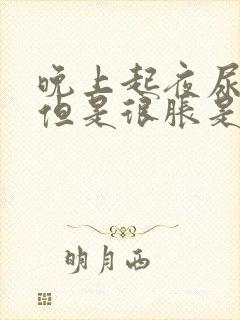 晚上起夜尿
但是很胀是
明月西